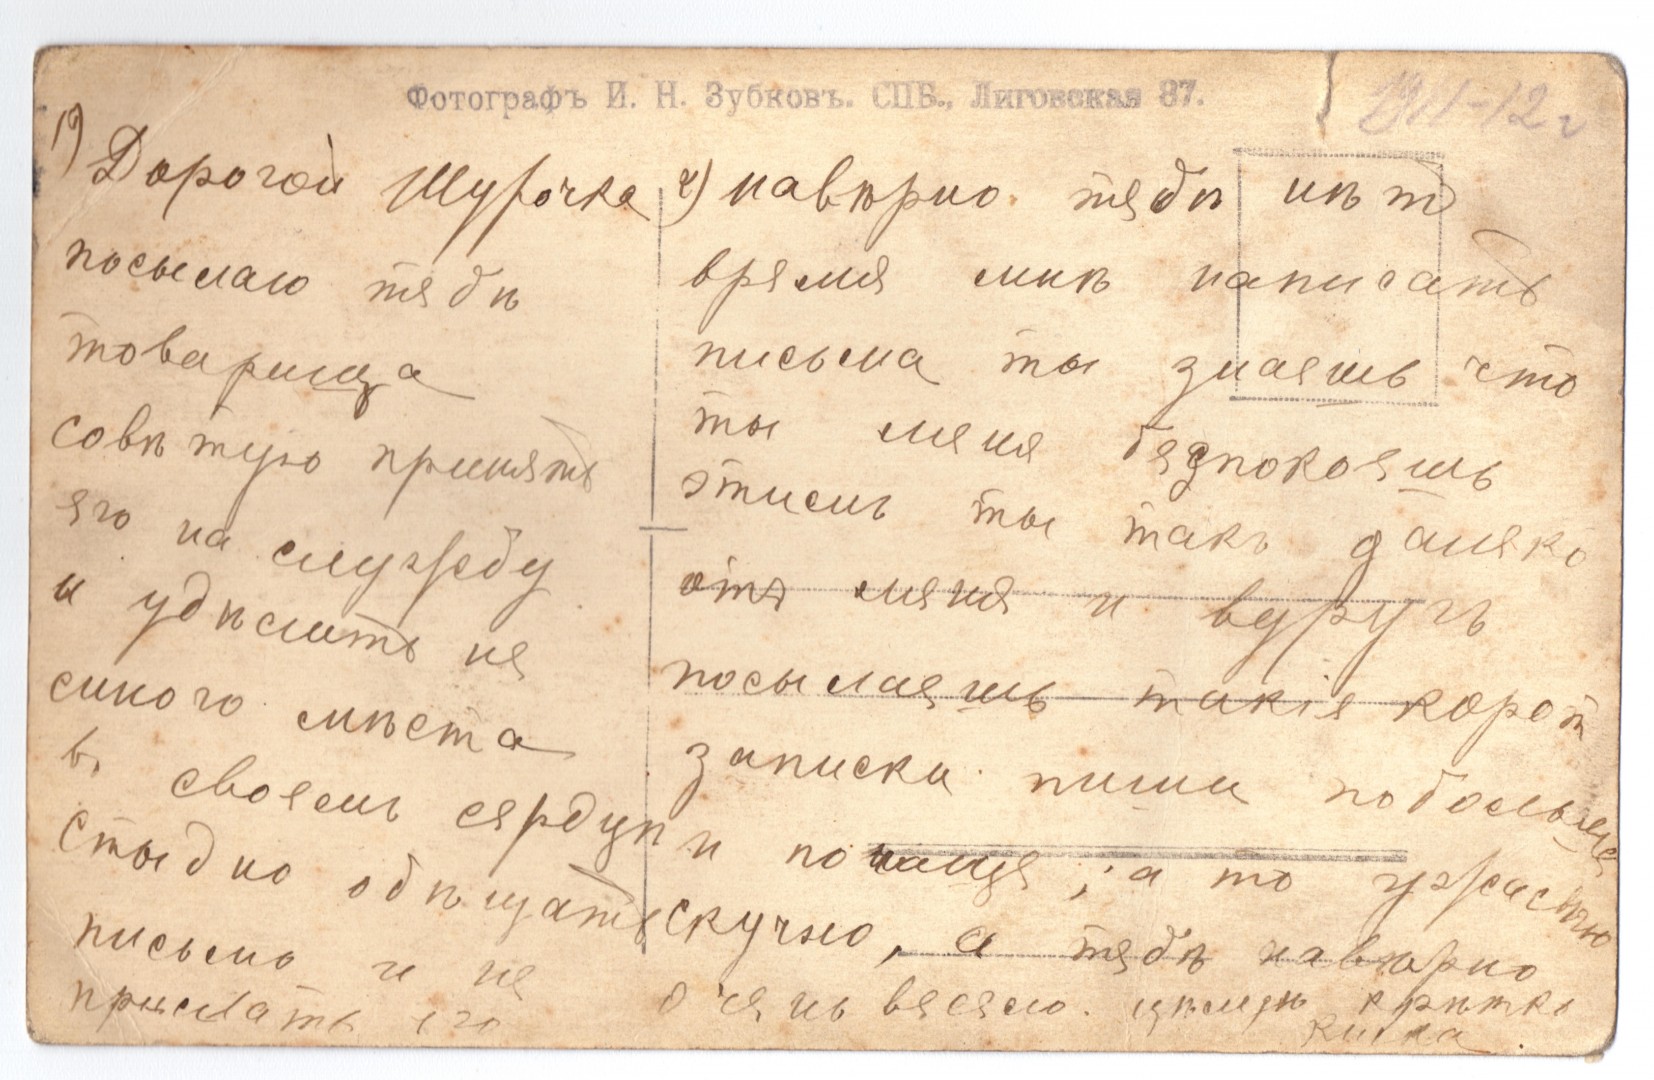 Фотографъ И. Н. Зубковъ. СПБ., Лиговская 87.
1911-12 г
1) Дорогой Шурочка
посылаю тябѣ
товарища
совѣтую принять
яго на службу
и удѣлить ня
много мѣста
в. своямъ сярдцѣ
стыдно обѣщать
письмо и ня
прислать яго
2) навѣрно тябѣ нѣтъ
время мнѣ написать
письма ты знаяшь что
ты мяня бязпокояшь
этимъ ты такъ даляко
отъ мяня и вдругъ
посылаяшь такія корот
записки пиши побольше
и почаще, а то ужасно
скучно, а тябѣ навѣрно
очянь вясяло. цѣлую крѣпко